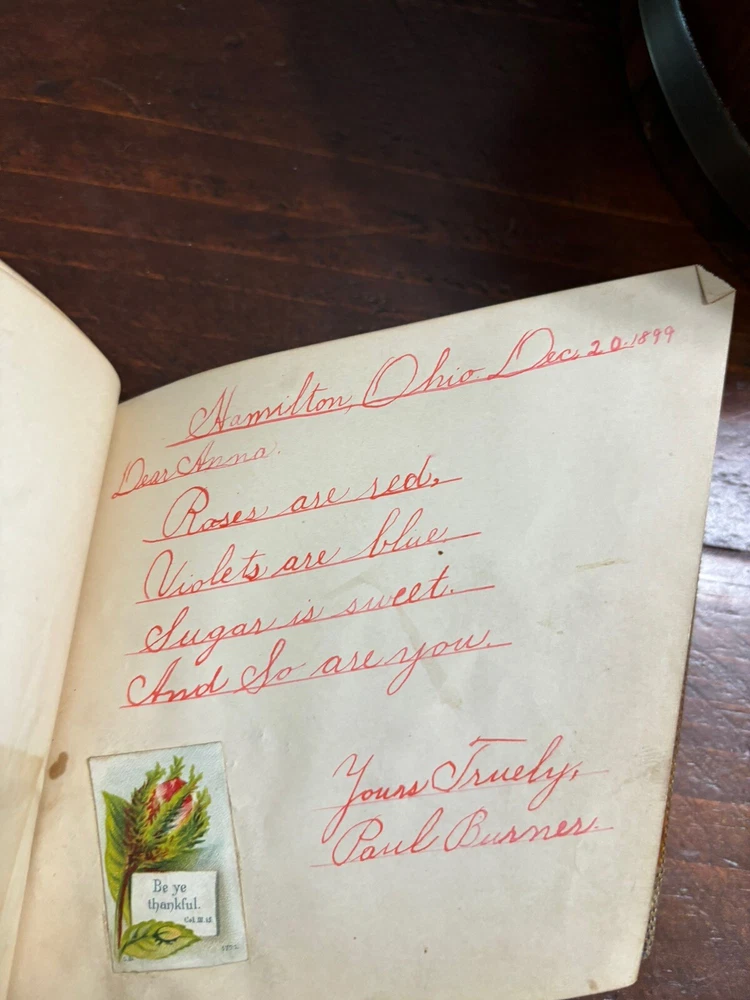 Hamilton, Ohio Dec. 20. 1899
Dear Anna.
Roses are red.
Violets are blue.
Sugar is sweet.
And So are you.
Yours Truely,
Paul Burner.
Be ye
thankful.
Col. III. 15